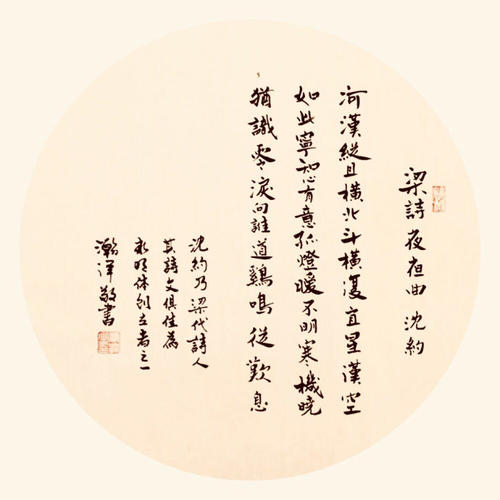 梁詩夜夜曲 沈約
河漢縱且橫北斗橫復直星漢空
如此寧知心有意孤燈暖不明寒機曉
猶識零淚向誰道鷄鳴徒歎息
沈約乃梁代詩人
其詩文俱佳為
永明体创立者之一
瀚洋敬書